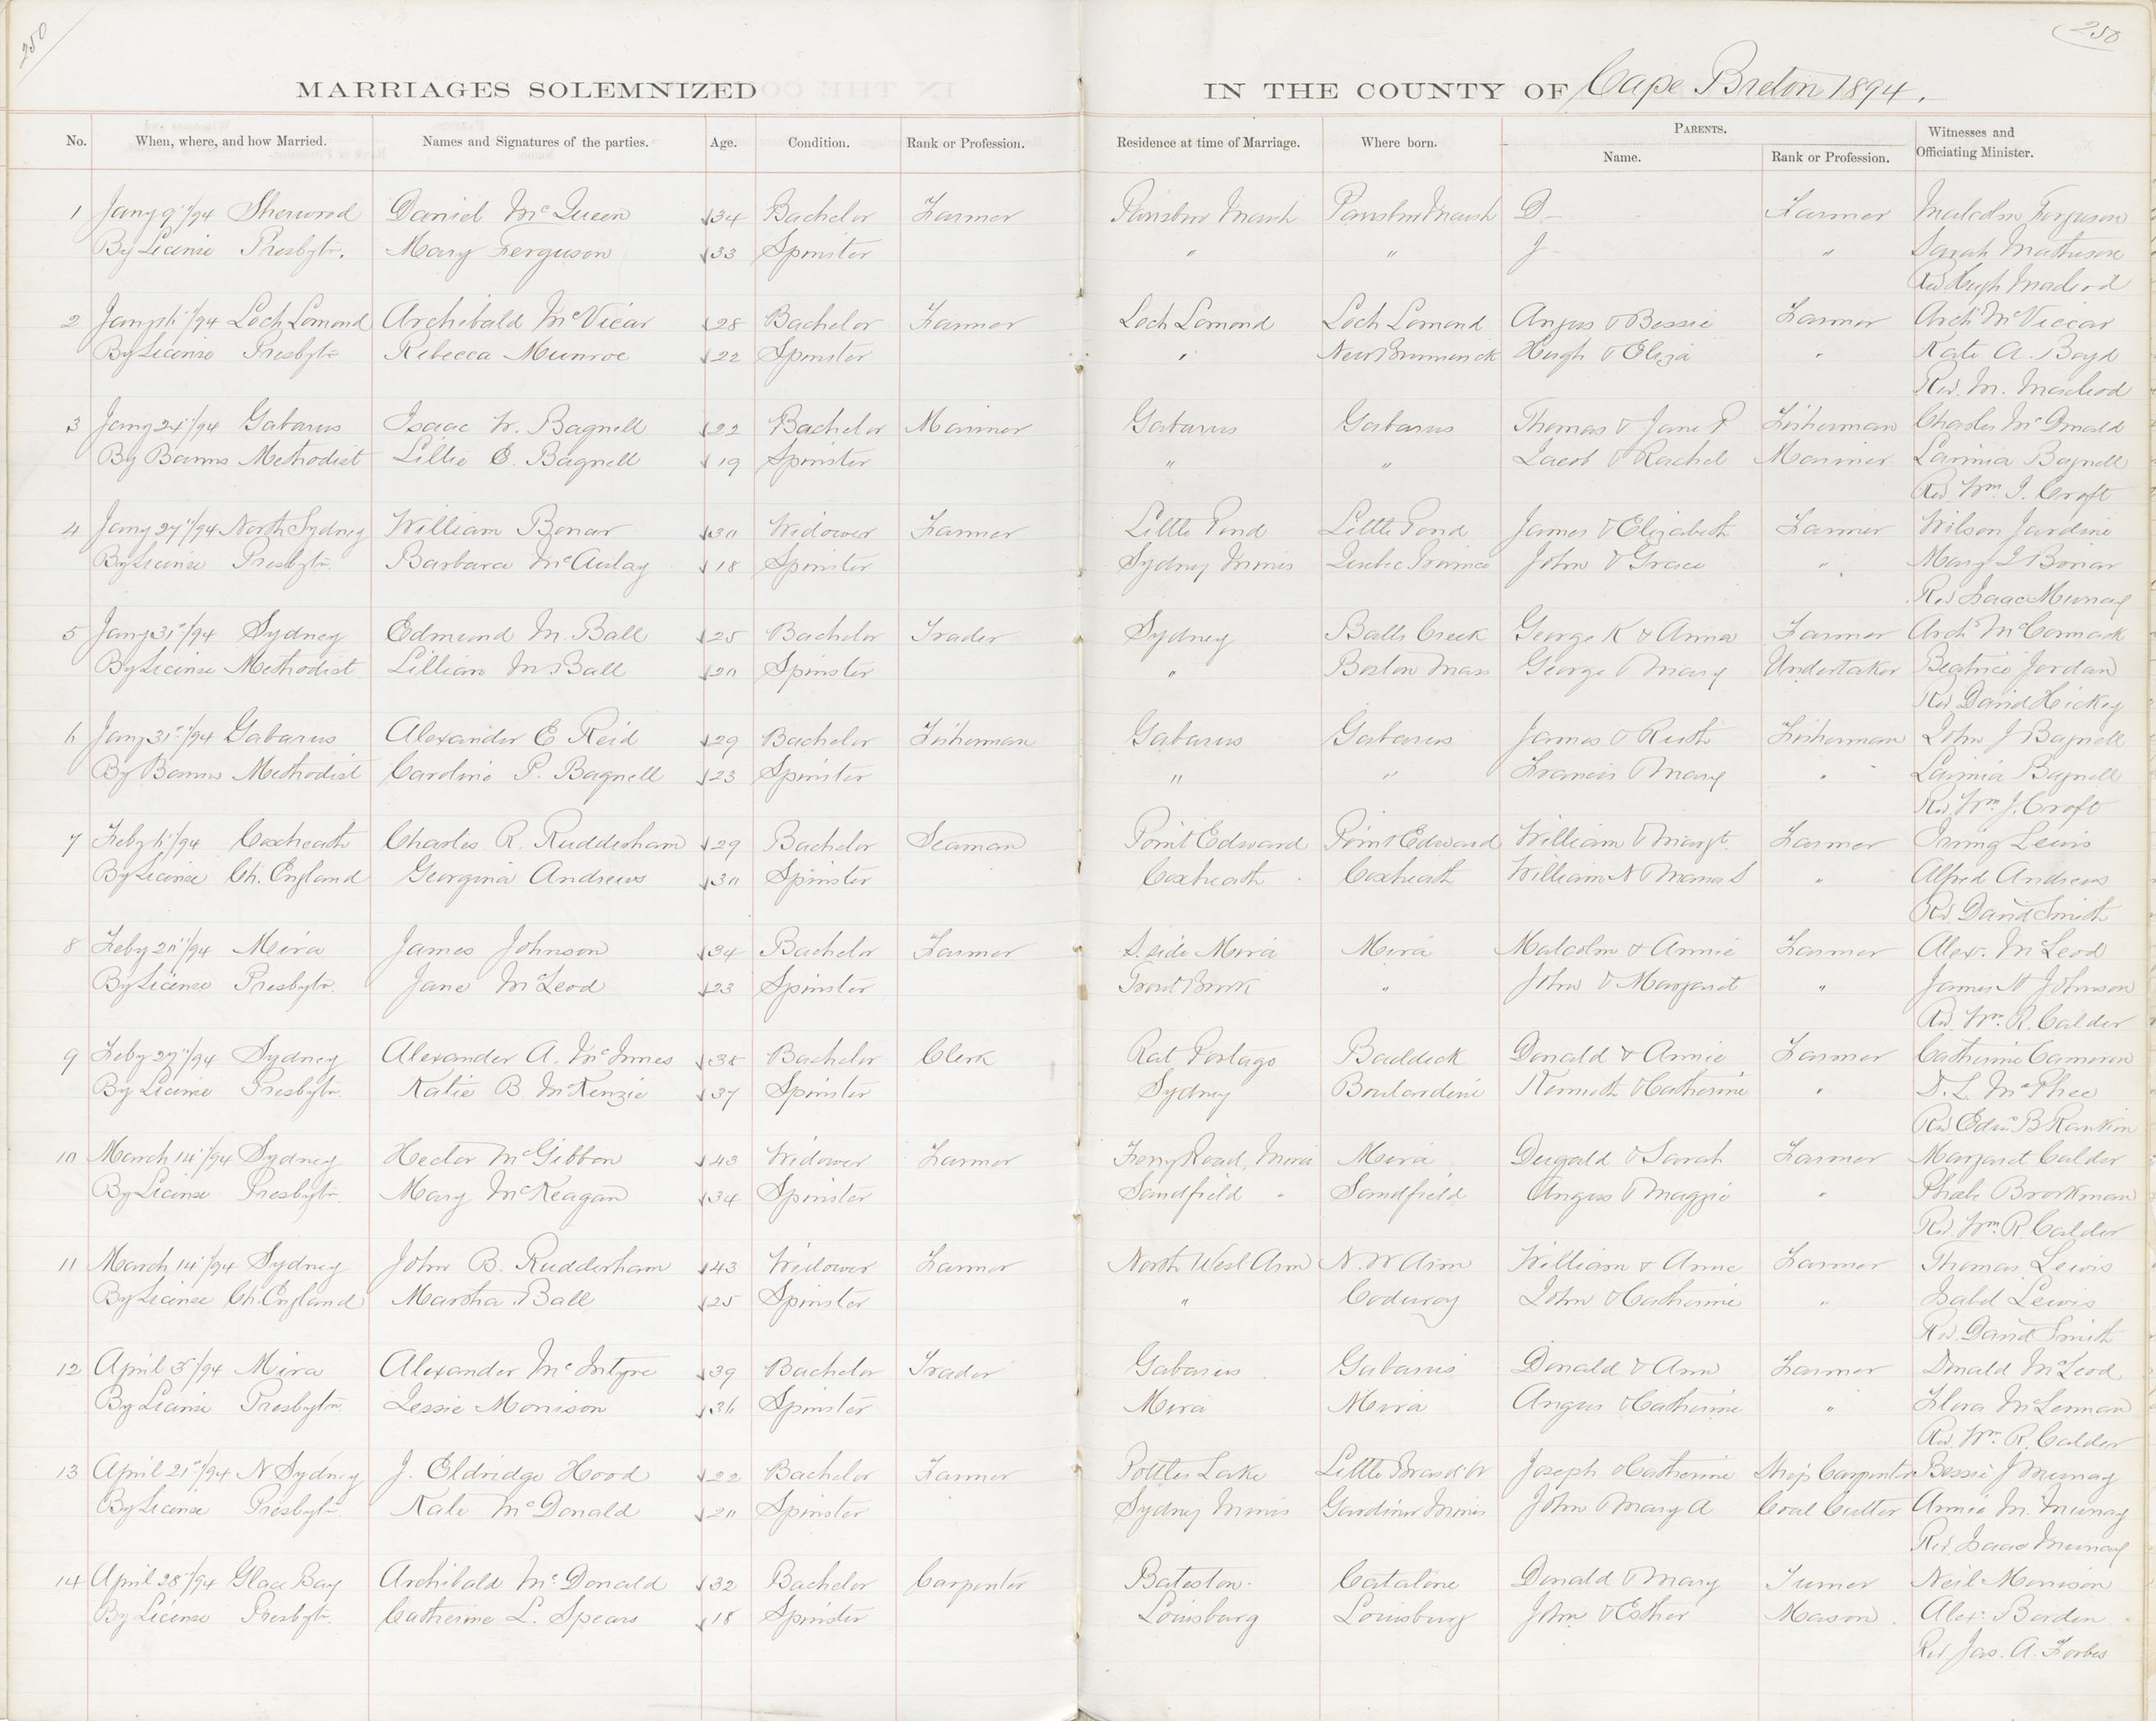 250
250
MARRIAGES SOLEMNIZED IN THE COUNTY OF Cape Breton 1894.
No. When, where, and how Married. Names and Signatures of the parties. Age. Condition. Rank or Profession. Residence at time of Marriage. Where born. PARENTS. Name. Rank or Profession. Witnesses and Officiating Minister.
1 Jany 9"/94 Sherwood Daniel McQueen 34 Bachelor Farmer Marsh Marsh D- Farmer Malcolm Ferguson
By License Presbytn. Mary Ferguson 33 Spinster " " J " Sarah Matheson
Rev Hugh Macleod
2 Jany 16"/94 Loch Lomond Archibald McVicar 28 Bachelor Farmer Loch Lomond Loch Lomond Angus & Bessie Farmer Archd McViccar
By License Presbytn Rebecca Munroe 22 Spinster " New Brunswick Hugh & Eliza " Kate A. Boyd
Rev. M. Macleod
3 Jany 24"/94 Gabarus Isaac W. Bagnell 22 Bachelor Mariner Gabarus Gabarus Thomas & Jane P Fisherman Charles McDonald
By Banns Methodist Lillie E. Bagnell 19 Spinster " " Jacob & Rachel Mariner Lavinia Bagnell
Rev Wm. J. Croft
4 Jany 27"/94 North Sydney William Bonar 30 Widower Farmer Little Pond Little Pond James & Elizabeth Farmer Wilson Jardine
By License Presbytn Barbara McAulay 18 Spinster Sydney Mines Quebec Province John & Grace " Mary I Bonar
Rev Isaac Murray
5 Jany 31st/94 Sydney Edmund M. Ball 25 Bachelor Trader Sydney Balls Creek George K & Anna Farmer Archd McCormack
By License Methodist Lillian M Ball 20 Spinster " Boston Mass George & Mary Undertaker Beatrice Jordan
Rev David Hickey
6 Jany 31st/94 Gabarus Alexander E Reid 29 Bachelor Fisherman Gabarus Gabarus James & Ruth Fisherman John J Bagnell
By Banns Methodist Caroline P. Bagnell 23 Spinster " " Francis & Mary " Lavinia Bagnell
Rev Wm J. Croft
7 Feby 6"/94 Coxheath Charles R. Rudderham 29 Bachelor Seaman Point Edward Point Edward William & Margt. Farmer Irving Lewis
By License Ch. England Georgina Andrews 30 Spinster Coxheath Coxheath William N & Maria S " Alfred Andrews
Rev. David Smith
8 Feby 20"/94 Mira James Johnson 34 Bachelor Farmer S. side Mira Mira Malcolm & Annie Farmer Alex. McLeod
By License Presbytn. Jane McLeod 23 Spinster Trout Brook " John & Margaret " James H Johnson
Rev. Wm. R. Calder
9 Feby 27"/94 Sydney Alexander A. McInnes 38 Bachelor Clerk Rat Portage Baddeck Donald & Annie Farmer Catherine Cameron
By License Presbytn. Katie B McKenzie 37 Spinster Sydney Boulardarie Kenneth & Catherine " D. L. McPhee
Rev Edwn B Rankin
10 March 14"/94 Sydney Hector McGibbon 43 Widower Farmer Ferry Road, Mira Mira Dugald & Sarah Farmer Margaret Calder
By License Presbytn. Mary McKeagan 34 Spinster Sandfield " Sandfield Angus & Maggie " Phebe Brookman
Rev. Wm R Calder
11 March 14"/94 Sydney John B. Rudderham 43 Widower Farmer North West Arm N. W Arm William & Anne Farmer Thomas Lewis
By License Ch. England Martha Ball 25 Spinster " Coduroy John & Catherine " Isabel Lewis
Rev. David Smith
12 April 3"/94 Mira Alexander McIntyre 39 Bachelor Trader Gabarus Gabarus Donald & Ann Farmer Donald McLeod
By License Presbytn Lessie Morrison 36 Spinster Mira Mira Angus & Catherine " Flora McLennan
Rev. Wm. R. Calder
13 April 21st/94 N Sydney J. Eldridge Hood 22 Bachelor Farmer Pottles Lake Little Bras d'Or Joseph & Catherine Ship Carpenter Bessie J Murray
By License Presbytn Kate McDonald 20 Spinster Sydney Mines Gardiner Mines John & Mary A Coal Cutter Annie M. Murray
Rev. Isaac Murray
14 April 28"/94 Glace Bay Archibald McDonald 32 Bachelor Carpenter Bateston. Catalone Donald & Mary Turner Neil Morrison
By License Presbytn. Catherine L. Spears 18 Spinster Louisburg Louisburg John & Esther Mason Alex. Borden
Rev. Jas. A. Forbes